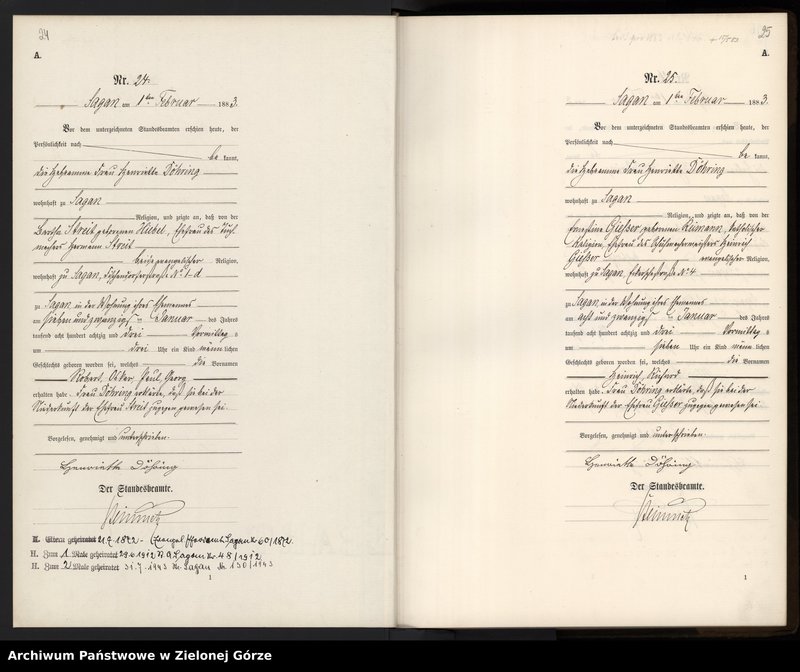 24
A.
Nr. 24.
Sagan am 1ten Februar 1883.
Vor dem unterzeichneten Standesbeamten erschien heute, der
Persönlichkeit nach
be kannt,
die Hebeamme Frau Henriette Döhring
wohnhaft zu Sagan
Religion, und zeigte an, daß von der
Bertha Streit geborenen Hiebel, Ehefrau des
Hermann Streit
beide evangelischer Religion,
wohnhaft zu Sagan, No 1-d
zu Sagan in der Wohnung ihres Ehemannes
am sieben und zwanzigsten Januar des Jahres
tausend acht hundert achtzig und drei Vormittags
um drei Uhr ein Kind männlichen
Geschlechts geboren worden sei, welches die Vornamen
Robert, Oskar, Paul, Georg
erhalten habe. Frau Döhring erklärte, daß sie bei der
Niederkunft der Ehefrau Streit zugegen gewesen sei.
Vorgelesen, genehmigt und unterschrieben.
Henriette Döhring
Der Standesbeamte.
Eltern geheiratet 21.7.1872. Sagan Nr. 60/1872.
H. Zum 1. Male geheiratet 29.6.1912 Sagan Nr. 48/1912
H. Zum 2. Male geheiratet 31.7.1943 Nr. Sagan Nr. 130/1943
1
25
A.
Nr. 25.
Sagan am 1ten Februar 1883.
Vor dem unterzeichneten Standesbeamten erschien heute, der
Persönlichkeit nach
be kannt,
die Hebeamme Frau Henriette Döhring
wohnhaft zu Sagan
Religion, und zeigte an, daß von der
Ernestine Gießer, geborenen Reimann, katholischer
Religion, Ehefrau des Heinrich
Gießer evangelischer Religion,
wohnhaft zu Sagan, No 4
zu Sagan in der Wohnung ihres Ehemannes
am acht und zwanzigsten Januar des Jahres
tausend acht hundert achtzig und drei Vormittags
um sieben Uhr ein Kind männlichen
Geschlechts geboren worden sei, welches die Vornamen
Heinrich Richard
erhalten habe. Frau Döhring erklärte, daß sie bei der
Niederkunft der Ehefrau Gießer zugegen gewesen sei.
Vorgelesen, genehmigt und unterschrieben.
Henriette Döhring
Der Standesbeamte.
1
Archiwum Państwowe w Zielonej Górze